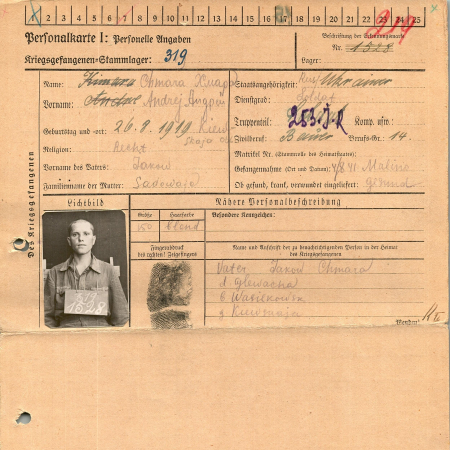 X 2 3 4 5 6 7 8 9 10 11 12 13 14 15 16 17 18 19 20 21 22 23 24 25
Personalkarte I: Personelle Angaben
Kriegsgefangenen-Stammlager: 319
Beschriftung der Erkennungsmarke
Nr. 1528
219
Des Kriegsgefangenen
Name: Chmara
Vorname: Andrej
Geburtstag und -ort: 26.8.1919 Kiew
Religion:
Vorname des Vaters: Jakow
Familienname der Mutter: Sadowaja
Staatsangehörigkeit: Ukrainer
Dienstgrad: Soldat
Truppenteil: 253. J.R Komp. usw.:
Zivilberuf: Bauer Berufs-Gr. 14
Matrikel Nr. (Stammrolle des Heimatstaates):
Gefangennahme (Ort und Datum): 4/8 41 Malino
Ob gesund, krank, verwundet eingeliefert: gesund
Lichtbild
Größe Haarfarbe
150 blond
Fingerabdruck
des rechten! Zeigefingers
Nähere Personalbeschreibung
Besondere Kennzeichen:
Name und Anschrift der zu benachrichtigenden Person in der Heimat
des Kriegsgefangenen
Vater Jakow Chmara
d Glewacha
Wasilkowsk
g Kiewskaja
Wenden!